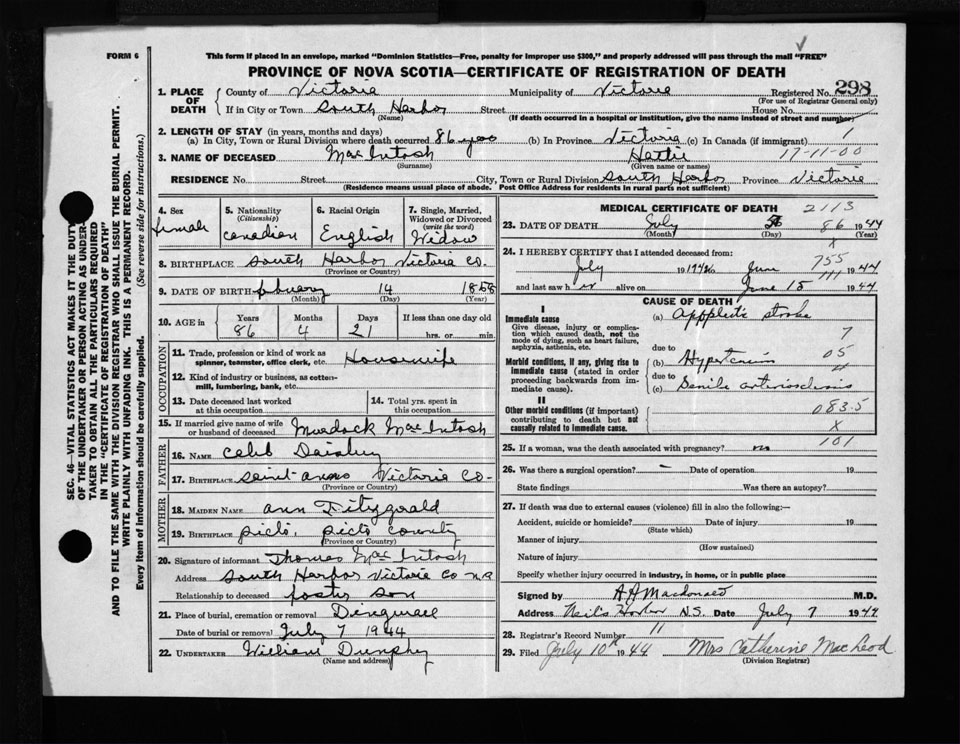 FORM 6
This form if placed in an envelope, marked "Dominion Statistics—Free, penalty for improper use $300," and properly addressed will pass through the mail "FREE"
PROVINCE OF NOVA SCOTIA—CERTIFICATE OF REGISTRATION OF DEATH
1. PLACE OF DEATH County of Victoria Municipality of Victoria Registered No. 298
(For use of Registrar General only)
If in City or Town South Harbor Street House No.
(Name) (If death occurred in a hospital or institution, give the name instead of street and number)
2. LENGTH OF STAY (in years, months and days)
(a) In City, Town or Rural Division where death occurred 86 yrs (b) In Province Victoria (c) In Canada (if immigrant) 1
3. NAME OF DECEASED MacIntosh Hattie 17-11-00
(Surname) (Given name or names)
RESIDENCE No. Street City, Town or Rural Division South Harbor Province Victoria
(Residence means usual place of abode. Post Office Address for residents in rural parts not sufficient)
SEC. 46—VITAL STATISTICS ACT MAKES IT THE DUTY
OF THE UNDERTAKER OR PERSON ACTING AS UNDER-
TAKER TO OBTAIN ALL THE PARTICULARS REQUIRED
IN THE "CERTIFICATE OF REGISTRATION OF DEATH"
AND TO FILE THE SAME WITH THE DIVISION REGISTRAR WHO SHALL ISSUE THE BURIAL PERMIT.
WRITE PLAINLY WITH UNFADING INK. THIS IS A PERMANENT RECORD.
Every item of information should be carefully supplied. (See reverse side for instructions.)
4. Sex female
5. Nationality (Citizenship) Canadian
6. Racial Origin English
7. Single, Married, Widowed or Divorced (write the word) Widow
8. BIRTHPLACE South Harbor Victoria Co.
(Province or Country)
9. DATE OF BIRTH February 14 1858
(Month) (Day) (Year)
10. AGE in Years 86 Months 4 Days 21 If less than one day old hrs. or min.
OCCUPATION
11. Trade, profession or kind of work as spinner, teamster, office clerk, etc. Housewife
12. Kind of industry or business, as cotton-mill, lumbering, bank, etc.
13. Date deceased last worked at this occupation
14. Total yrs. spent in this occupation
15. If married give name of wife or husband of deceased Murdock MacIntosh
FATHER
16. NAME Caleb
17. BIRTHPLACE Victoria Co.
(Province or Country)
MOTHER
18. MAIDEN NAME Ann Fitzgerald
19. BIRTHPLACE Picto, Picto County
(Province or Country)
20. Signature of informant Thomas MacIntosh
Address South Harbor Victoria Co N.S
Relationship to deceased foster son
21. Place of burial, cremation or removal Dingwall
Date of burial or removal July 7 1944
22. UNDERTAKER William Dunphy
(Name and address)
MEDICAL CERTIFICATE OF DEATH 2113
23. DATE OF DEATH July 86 1944
(Month) (Day) (Year)
24. I HEREBY CERTIFY that I attended deceased from: X
July 194 to June 755 1944
and last saw her alive on June 15 1944
CAUSE OF DEATH
I
Immediate cause
Give disease, injury or complication which caused death, not the mode of dying, such as heart failure, asphyxia, asthenia, etc.
(a) Applectic stroke
due to 7
Morbid conditions, if any, giving rise to immediate cause (stated in order proceeding backwards from immediate cause).
(b) Hypertension 05
due to
(c) Senile arteriosclerosis
II
Other morbid conditions (if important) contributing to death but not causally related to immediate cause.
083.5
X
25. If a woman, was the death associated with pregnancy? no 101
26. Was there a surgical operation? — Date of operation 19
State findings Was there an autopsy?
27. If death was due to external causes (violence) fill in also the following:—
Accident, suicide or homicide? Date of injury 19
(State which)
Manner of injury
(How sustained)
Nature of injury
Specify whether injury occurred in industry, in home, or in public place
Signed by A A Macdonald M.D.
Address Neil's Harbor N.S. Date July 7 1944
28. Registrar's Record Number 11
29. Filed July 10th 1944 Mrs Catherine MacLeod
(Division Registrar)